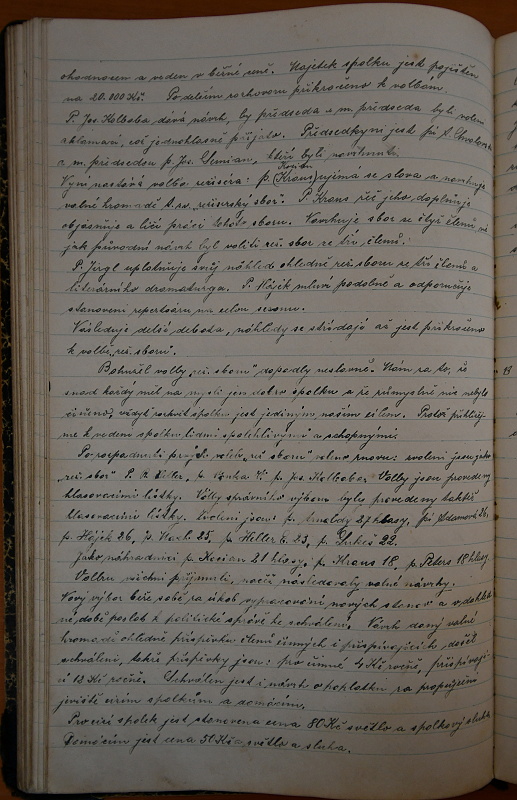 ohodnocen a veden v běžné ceně. Majetek spolku jest pojištěn
na 20.000 Kč. Po delším rozhovoru přikročeno k volbám
P. Jos. Holboba dává návrh, by předseda a m. předseda byli voleni
aklamací, což jednohlasně přijato. Předsedkyní jest pí A.
a m. předsedou p. Jos. Demian, kteří byli navrhnuti.
Nyní nastává volba reiséra: p. (Kraus) ujímá se slova a navrhuje
valné hromadě t. zv. "reiserský sbor". P. Kraus řeč jeho doplňuje
objasňuje a líčí práci tohoto sboru. Navrhuje sbor ze čtyř členů, než
jak původní návrh byl voliti rei. sbor ze tří členů.
P. Jirgl uplatňuje svůj náhled ohledně rei. sboru ze tří členů a
literárního dramaturga. P. Hájek mluví podobně a odporučuje
stanovení repertoáru na celou sezonu.
Následuje delší debata, náhledy se střídají až jest přikročeno
k volbě "rei. sboru".
Bohužel volby "rei. sboru" dopadly neslavně. Mám za to, že
snad každý měl na mysli jen dobro spolku a že úmyslně nic nebylo
činěno, vždyť rozkvět spolku jest jediným naším cílem. Proto přihlížej-
me k vedení spolku lidmi spolehlivými a schopnými.
Po rozpadnutí prvých voleb "rei. sboru" voleno znovu: zvoleni jsou jako
"rei. sbor" P. R. Heller, p. Vaňka V. p. Jos. Holboba. Volby jsou provedeny
hlasovacími lístky. Volby správního výboru byly provedeny taktéž
hlasovacími lístky. Zvoleni jsou: p. 27 hlasy, pí Adamová 26,
p. Hájek 26, p. Hach 25, p. Heller E. 23, p. Dukeš 22.
Jako náhradníci p. Kocian 21 hlasy, p. Kraus 18, p. Peters 18 hlasy.
Volbu všichni přijmuli, načež následovaly volné návrhy.
Nový výbor béře sobě za úkol vypracování nových stanov a v dohled-
né době poslat k politické správě ke schválení. Návrh daný valné
hromadě ohledně příspěvku členů činných i přispívajících došel
schválení, takže příspěvky jsou: pro činné 4 Kč ročně, přispívají-
cí 12 Kč ročně. Schválen jest i návrh o poplatku za propůjčení
jeviště cizím spolkům a domácím.
Pro cizí spolek jest stanovena cena 80 Kč světlo a spolkový sluha
Domácím jest cena 50 Kč a světlo a sluha.